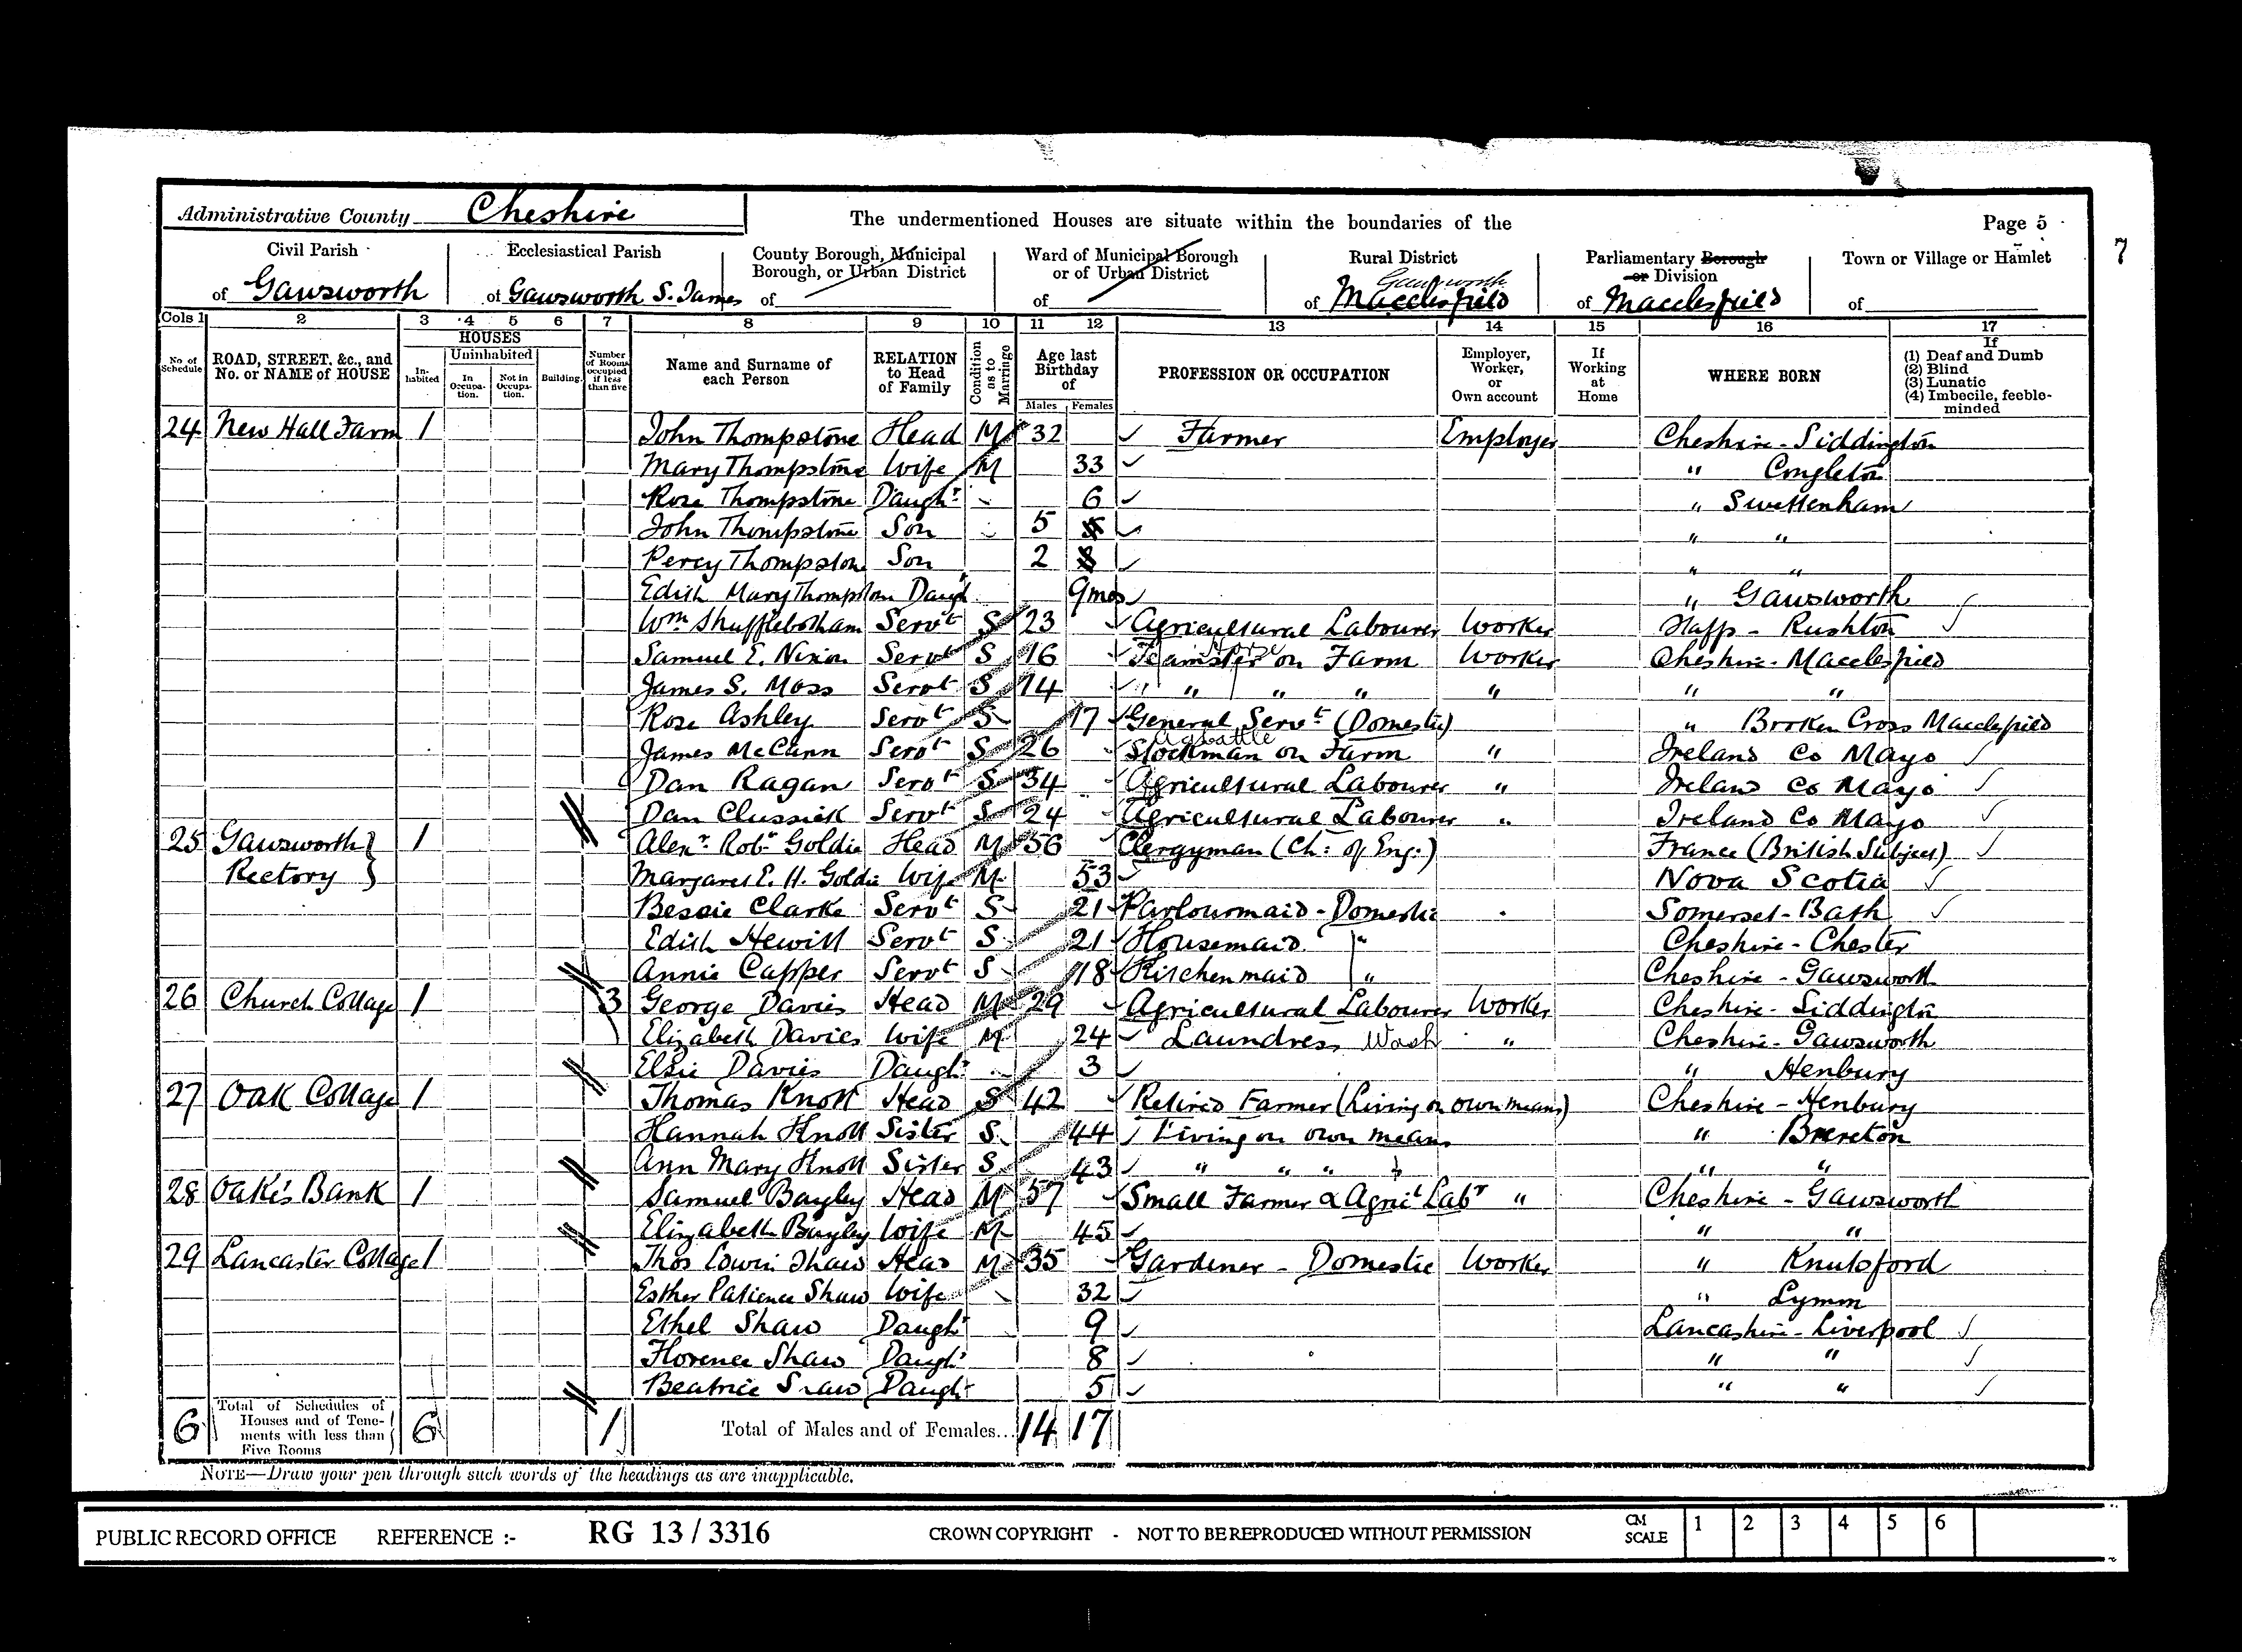 Administrative County Cheshire
The undermentioned Houses are situate within the boundaries of the
Page 5
7
Civil Parish
of Gawsworth
Ecclesiastical Parish
of Gawsworth S. James
County Borough, Municipal Borough, or Urban District
of
Ward of Municipal Borough or of Urban District
of
Rural District
Gawsworth
of Macclesfield
Parliamentary Borough or Division
of Macclesfield
Town or Village or Hamlet
of
Cols 1 2 3 4 5 6 7 8 9 10 11 12 13 14 15 16 17
No. of Schedule
ROAD, STREET, &c., and No. or NAME of HOUSE
HOUSES
Inhabited
Uninhabited
In Occupation.
Not in Occupation.
Building.
Number of Rooms occupied if less than five
Name and Surname of each Person
RELATION to Head of Family
Condition as to Marriage
Age last Birthday of
Males Females
PROFESSION OR OCCUPATION
Employer, Worker, or Own account
If Working at Home
WHERE BORN
If
(1) Deaf and Dumb
(2) Blind
(3) Lunatic
(4) Imbecile, feeble-minded
24 New Hall Farm 1 John Thompstone Head M 32 Farmer Employer Cheshire - Siddington
Mary Thompstone Wife M 33 " Congleton
Rose Thompstone Daughr 6 " Swettenham
John Thompstone Son 5 " "
Percy Thompston Son 2 " "
Edith Mary Thompston Daugh 9mos " Gawsworth
Wm Shufflebotham Servt S 23 Agricultural Labourer Worker Staffs - Rushton
Samuel E. Nixon Servt S 16 Teamster on Farm Worker Cheshire - Macclesfield
Horse
James S. Moss Servt S 14 " " " " " "
Rose Ashley Servt S 17 General Servt (Domestic) " Broken Cross Macclesfield
James McCann Servt S 26 Stockman on Farm " Ireland Co Mayo
Dan Ragan Servt S 34 Agricultural Labourer " Ireland Co Mayo
Dan Clussick Servt S 24 Agricultural Labourer " Ireland Co Mayo
25 Gawsworth Rectory 1 Alexr Robr Goldie Head M 56 Clergyman (Ch: of Eng:) France (British Subject)
Margaret E. H. Goldie Wife M 53 Nova Scotia
Bessie Clarke Servt S 21 Parlourmaid - Domestic Somerset - Bath
Edith Hewitt Servt S 21 Housemaid " Cheshire - Chester
Annie Capper Servt S 18 Kitchenmaid " Cheshire - Gawsworth
26 Church Cottage 1 3 George Davies Head M 29 Agricultural Labourer Worker Cheshire - Siddington
Elizabeth Davies Wife M 24 Laundress Wash " Cheshire - Gawsworth
Elsie Davies Daughr 3 " Henbury
27 Oak Cottage 1 Thomas Knott Head S 42 Retired Farmer (Living on own means) Cheshire - Henbury
Hannah Knott Sister S 44 Living on own means " Brereton
Ann Mary Knott Sister S 43 " " " " " "
28 Oakes Bank 1 Samuel Bayley Head M 57 Small Farmer & Agricl Labr " Cheshire - Gawsworth
Elizabeth Bayley Wife M 45 " "
29 Lancaster Cottage 1 Thos Edwin Shaw Head M 35 Gardener - Domestic Worker " Knutsford
Esther Patience Shaw Wife 32 " Lymm
Ethel Shaw Daughr 9 Lancashire - Liverpool
Florence Shaw Daughr 8 " "
Beatrice Shaw Daughr 5 " "
6 Total of Schedules of Houses and of Tenements with less than Five Rooms 6 1 Total of Males and of Females... 14 17
NOTE—Draw your pen through such words of the headings as are inapplicable.
PUBLIC RECORD OFFICE REFERENCE :- RG 13 / 3316 CROWN COPYRIGHT - NOT TO BE REPRODUCED WITHOUT PERMISSION CM SCALE 1 2 3 4 5 6